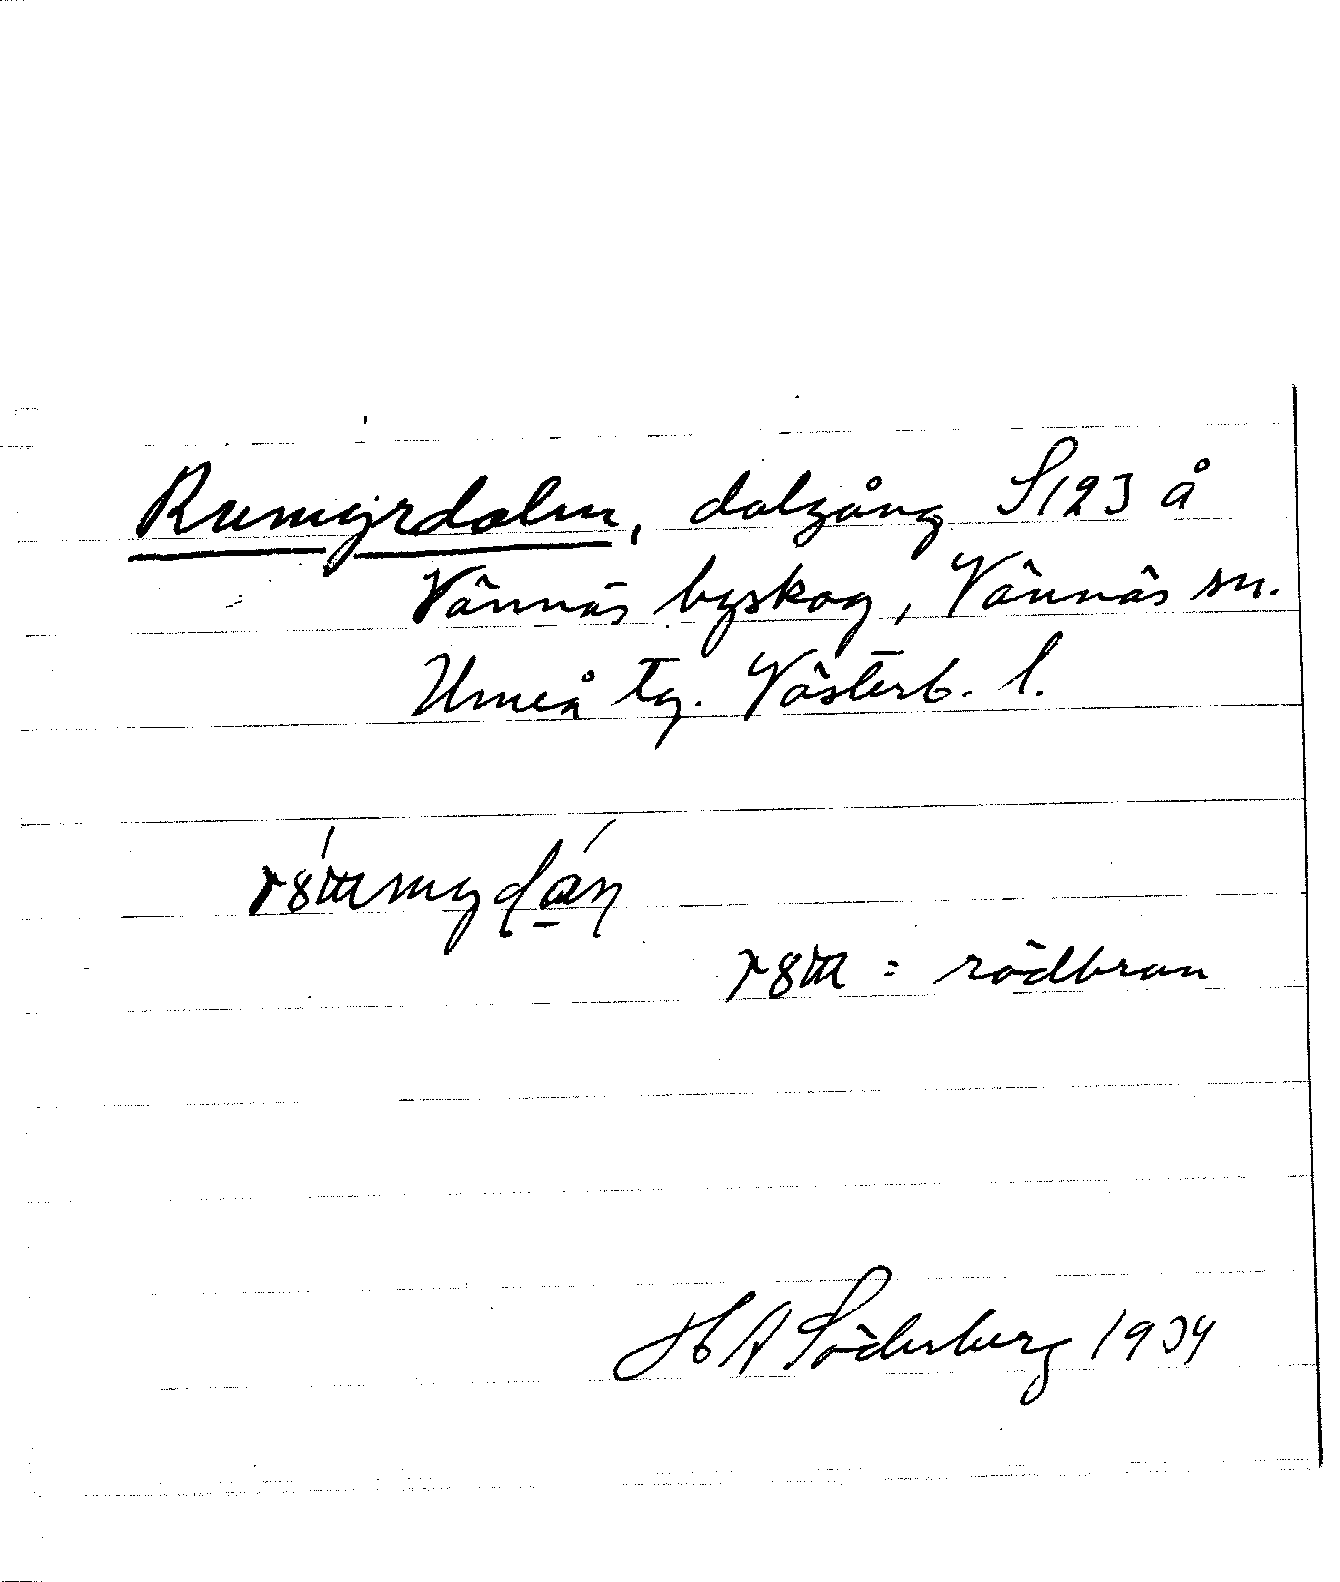 Rumyrdalen, dalgång S123 å
Vännäs byskog, Vännäs sn.
Umeå tg. Västerb. l.
= rödbrun
H A Söderberg 1934